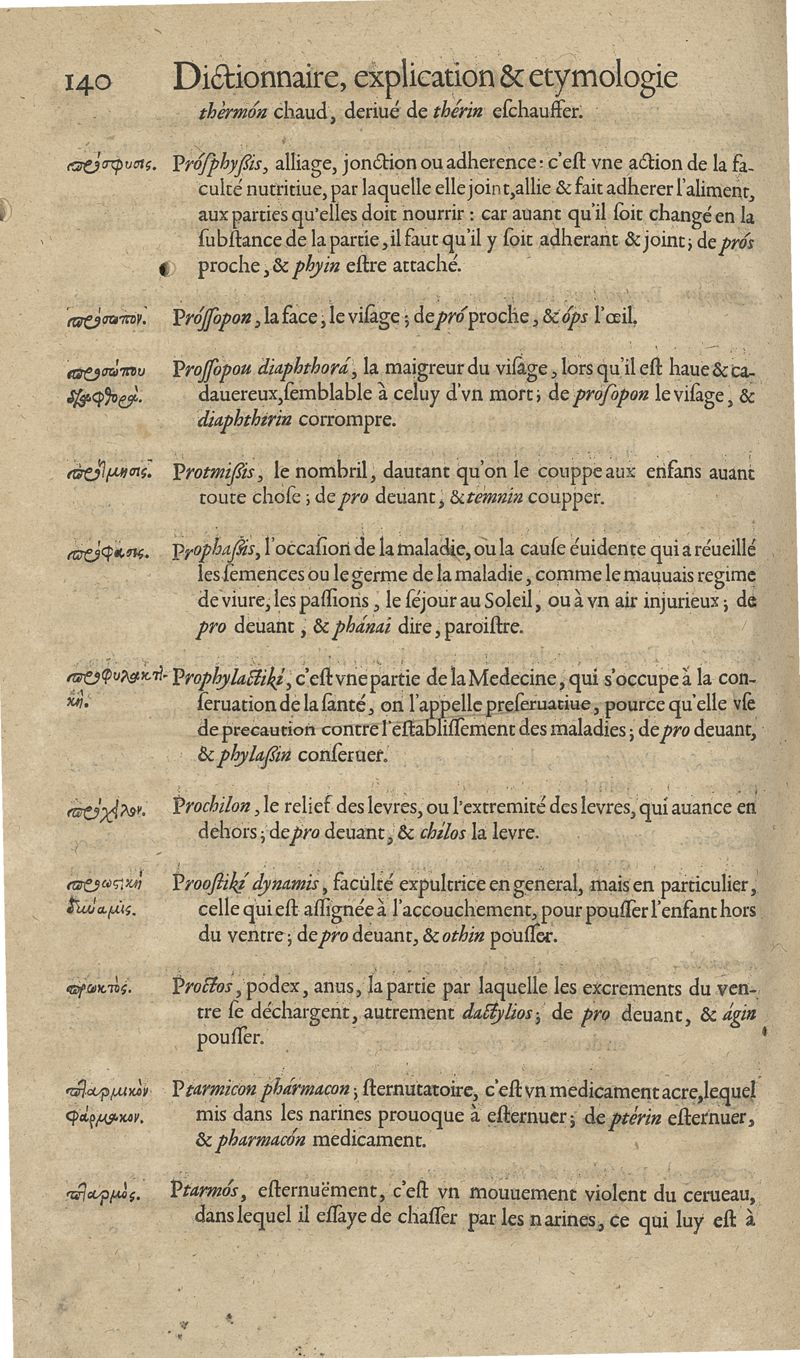 140 Dictionnaire, explication & etymologie
thèrmón chaud, deriué de thérin eſchauffer.
πρόσφυσις. Próſphyſis, alliage, jonction ou adherence: c'eſt vne action de la fa-
culté nutritiue, par laquelle elle joint, allie & fait adherer l'aliment,
aux parties qu'elles doit nourrir: car auant qu'il ſoit changé en la
ſubſtance de la partie, il faut qu'il y ſoit adherant & joint; de prós
proche, & phyin eſtre attaché.
πρόσωπον. Próſſopon, la face, le viſage; de pró proche, & óps l'œil.
προσώπου Proſſopou diaphthorá, la maigreur du viſage, lors qu'il eſt haue & ca-
διαφθορά. dauereux, ſemblable à celuy d'vn mort; de proſopon le viſage, &
diaphthirin corrompre.
πρότμησις. Protmiſis, le nombril, dautant qu'on le couppe aux enfans auant
toute choſe; de pro deuant, & temnin coupper.
πρόφασις. Prophaſis, l'occaſion de la maladie, ou la cauſe éuidente qui a réueillé
les ſemences ou le germe de la maladie, comme le mauuais regime
de viure, les paſſions, le ſéjour au Soleil, ou à vn air injurieux; de
pro deuant, & phánai dire, paroiſtre.
προφυλακτι- Prophylactikí, c'eſt vne partie de la Medecine, qui s'occupe à la con-
κή. ſeruation de la ſanté, on l'appelle preſeruatiue, pource qu'elle vſe
de precaution contre l'eſtabliſſement des maladies; de pro deuant,
& phylaſin conſeruer.
προχεῖλον. Prochilon, le relief des levres, ou l'extremité des levres, qui auance en
dehors; de pro deuant, & chilos la levre.
προωστικὴ Prooſtikí dynamis, faculté expultrice en general, mais en particulier,
δύναμις. celle qui eſt aſſignée à l'accouchement, pour pouſſer l'enfant hors
du ventre; de pro deuant, & othin pouſſer.
πρωκτὸς. Proctos, podex, anus, la partie par laquelle les excrements du ven-
tre ſe déchargent, autrement dactylios; de pro deuant, & ágin
pouſſer.
πταρμικὸν Ptarmicon phármacon; ſternutatoire, c'eſt vn medicament acre, lequel
φάρμακον. mis dans les narines prouoque à eſternuer; de ptérin eſternuer,
& pharmacón medicament.
πταρμὸς. Ptarmós, eſternuëment, c'eſt vn mouuement violent du cerueau,
dans lequel il eſſaye de chaſſer par les narines, ce qui luy eſt à